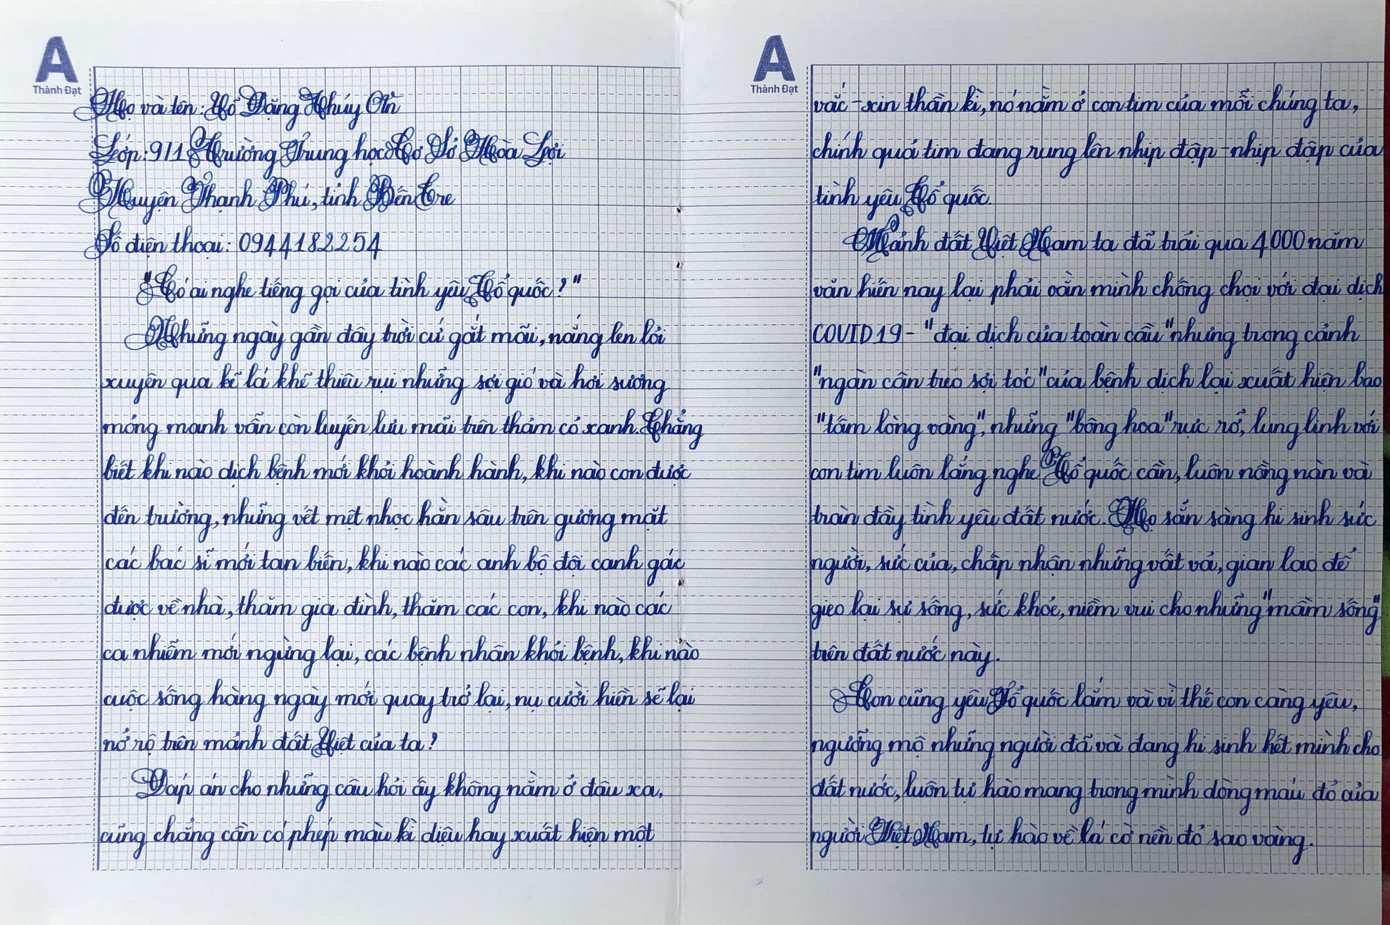 A
Thành Đạt
Họ và tên: Hồ Đặng Thúy An
Lớp: 9/1 Trường Trung học Cơ Sở Hòa Lợi
Huyện Thạnh Phú, tỉnh Bến Tre
Số điện thoại: 0944182254
"Có ai nghe tiếng gọi của tình yêu Tổ quốc?"
Những ngày gần đây trời cứ gắt mãi, nắng len lỏi
xuyên qua kẽ lá khẽ thiêu rụi những sợi gió và hơi sương
mỏng manh vẫn còn luyến lưu mãi trên thảm cỏ xanh. Chẳng
biết khi nào dịch bệnh mới khỏi hoành hành, khi nào con được
đến trường, những vết mệt nhọc hằn sâu trên gương mặt
các bác sĩ mới tan biến, khi nào các anh bộ đội canh gác
được về nhà, thăm gia đình, thăm các con, khi nào các
ca nhiễm mới ngừng lại, các bệnh nhân khỏi bệnh, khi nào
cuộc sống hàng ngày mới quay trở lại, nụ cười hiền sẽ lại
nở rộ trên mảnh đất Việt của ta?
Đáp án cho những câu hỏi ấy không nằm ở đâu xa,
cũng chẳng cần có phép màu kì diệu hay xuất hiện một
A
Thành Đạt
vắc-xin thần kì, nó nằm ở con tim của mỗi chúng ta,
chính quả tim đang rung lên nhịp đập - nhịp đập của
tình yêu Tổ quốc.
Mảnh đất Việt Nam ta đã trải qua 4000 năm
văn hiến nay lại phải oằn mình chống chọi với đại dịch
COVID 19 - "đại dịch của toàn cầu" nhưng trong cảnh
"ngàn cân treo sợi tóc" của bệnh dịch lại xuất hiện bao
"tấm lòng vàng", những "bông hoa" rực rỡ, lung linh với
con tim luôn lắng nghe Tổ quốc cần, luôn nồng nàn và
tràn đầy tình yêu đất nước. Họ sẵn sàng hi sinh sức
người, sức của, chấp nhận những vất vả, gian lao để
gieo lại sự sống, sức khỏe, niềm vui cho những "mầm sống"
trên đất nước này.
Con cũng yêu Tổ quốc lắm và vì thế con càng yêu,
ngưỡng mộ những người đã và đang hi sinh hết mình cho
đất nước, luôn tự hào mang trong mình dòng máu đỏ của
người Việt Nam, tự hào về lá cờ nền đỏ sao vàng.